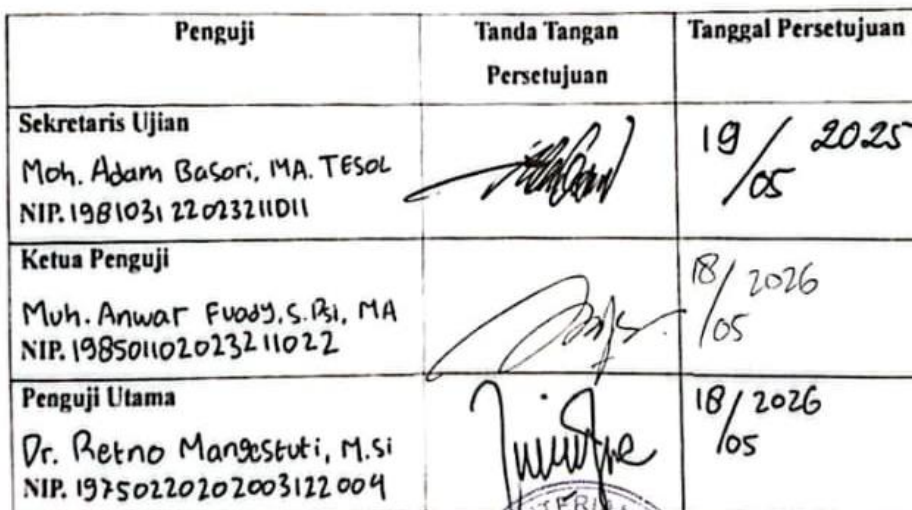 Penguji Tanda Tangan Tanggal Persetujuan
Persetujuan
Sekretaris Ujian
Moh. Adam Basori, MA. TESOL
NIP. 1981031 22023211011
19/05 2025
Ketua Penguji
Muh. Anwar Fuady, S.Psi, MA
NIP. 198501102023211022
18/05 2026
Penguji Utama
Dr. Retno Mangestuti, M.Si
NIP. 19750220202003122004
18/05 2026